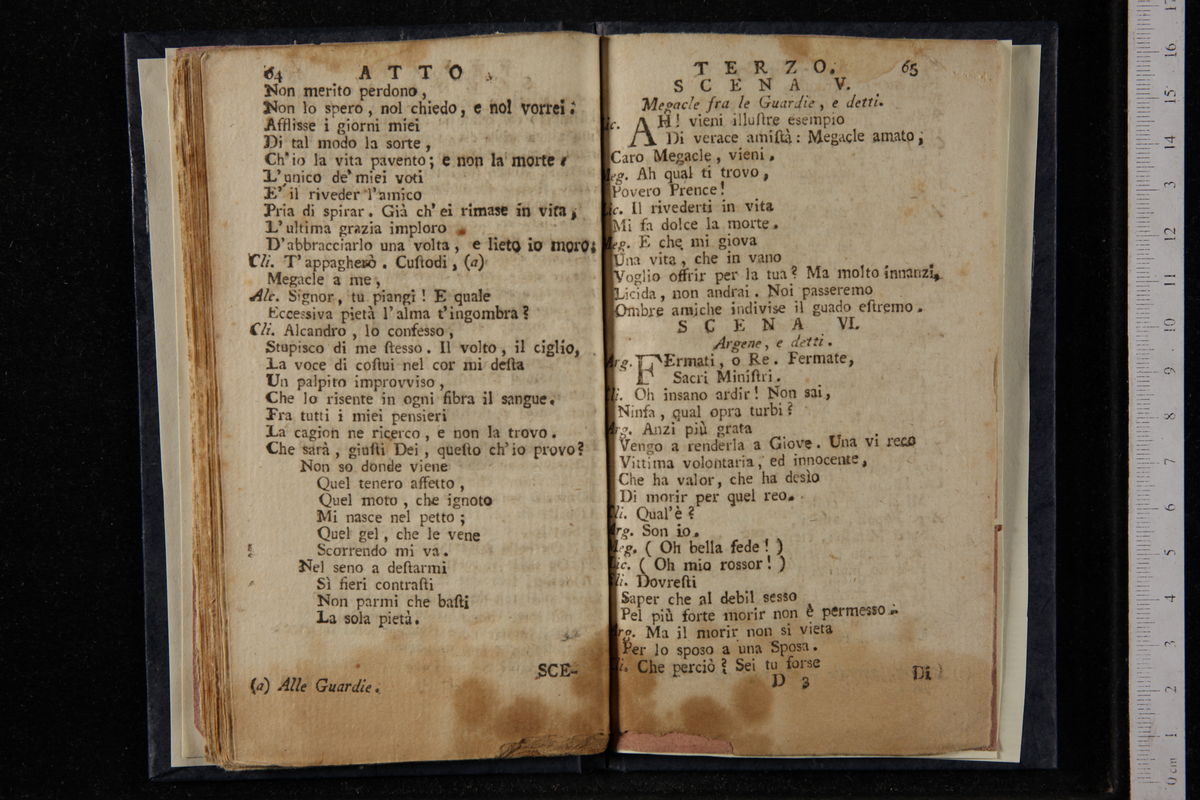 64 ATTO
Non merito perdono,
Non lo spero, nol chiedo, e nol vorrei:
Afflisse i giorni miei
Di tal modo la sorte,
Ch'io la vita pavento; e non la morte.
L'unico de' miei voti
E' il riveder l'amico
Pria di spirar. Già ch'ei rimase in vita,
L'ultima grazia imploro
D'abbracciarlo una volta, e lieto io moro;
Cli. T'appagherò. Cuſtodi, (a)
Megacle a me,
Alc. Signor, tu piangi! E quale
Eccessiva pietà l'alma t'ingombra?
Cli. Alcandro, lo confesso,
Stupisco di me ſtesso. Il volto, il ciglio,
La voce di coſtui nel cor mi deſta
Un palpito improvviso,
Che lo risente in ogni fibra il sangue.
Fra tutti i miei pensieri
La cagion ne ricerco, e non la trovo.
Che sarà, giuſti Dei, queſto ch'io provo?
Non so donde viene
Quel tenero affetto,
Quel moto, che ignoto
Mi nasce nel petto;
Quel gel, che le vene
Scorrendo mi va.
Nel seno a deſtarmi
Sì fieri contraſti
Non parmi che baſti
La sola pietà.
SCE-
(a) Alle Guardie.
TERZO. 65
SCENA V.
Megacle fra le Guardie, e detti.
ic. AH! vieni illuſtre esempio
Di verace amiſtà: Megacle amato,
Caro Megacle, vieni.
Meg. Ah qual ti trovo,
Povero Prence!
Lic. Il rivederti in vita
Mi fa dolce la morte.
Meg. E che mi giova
Una vita, che in vano
Voglio offrir per la tua? Ma molto innanzi,
Licida, non andrai. Noi passeremo
Ombre amiche indivise il guado eſtremo.
SCENA VI.
Argene, e detti.
Arg. FErmati, o Re. Fermate,
Sacri Miniſtri.
Cli. Oh insano ardir! Non sai,
Ninfa, qual opra turbi?
Arg. Anzi più grata
Vengo a renderla a Giove. Una vi reco
Vittima volontaria, ed innocente,
Che ha valor, che ha desio
Di morir per quel reo.
Cli. Qual'è?
Arg. Son io.
Meg. (Oh bella fede!)
Lic. (Oh mio rossor!)
Cli. Dovreſti
Saper che al debil sesso
Pel più forte morir non è permesso.
Arg. Ma il morir non si vieta
Per lo sposo a una Sposa.
Cli. Che perciò? Sei tu forse
D 3 Di